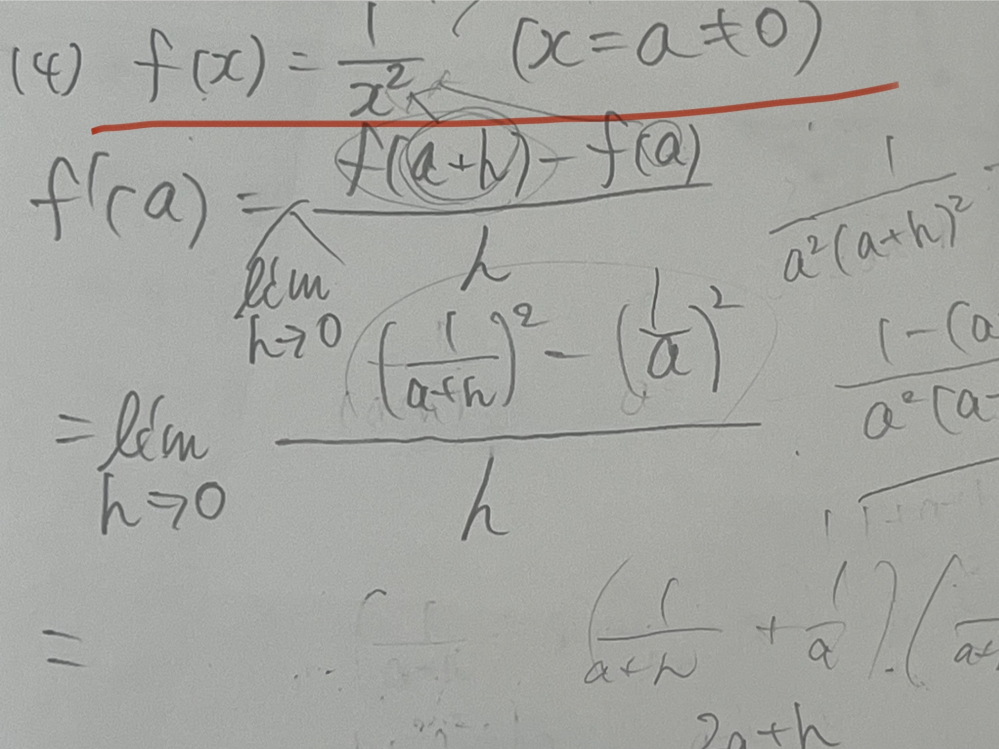 (4) f(x) = 1/x² (x = a ≠ 0)
f'(a) = lim h→0 (f(a+h) − f(a))/h
1/(a²(a+h)²)
= lim h→0 ((1/(a+h))² − (1/a)²)/h
1 − (a
a²(a
= (1/(a+h) + 1/a) · (
2a+h